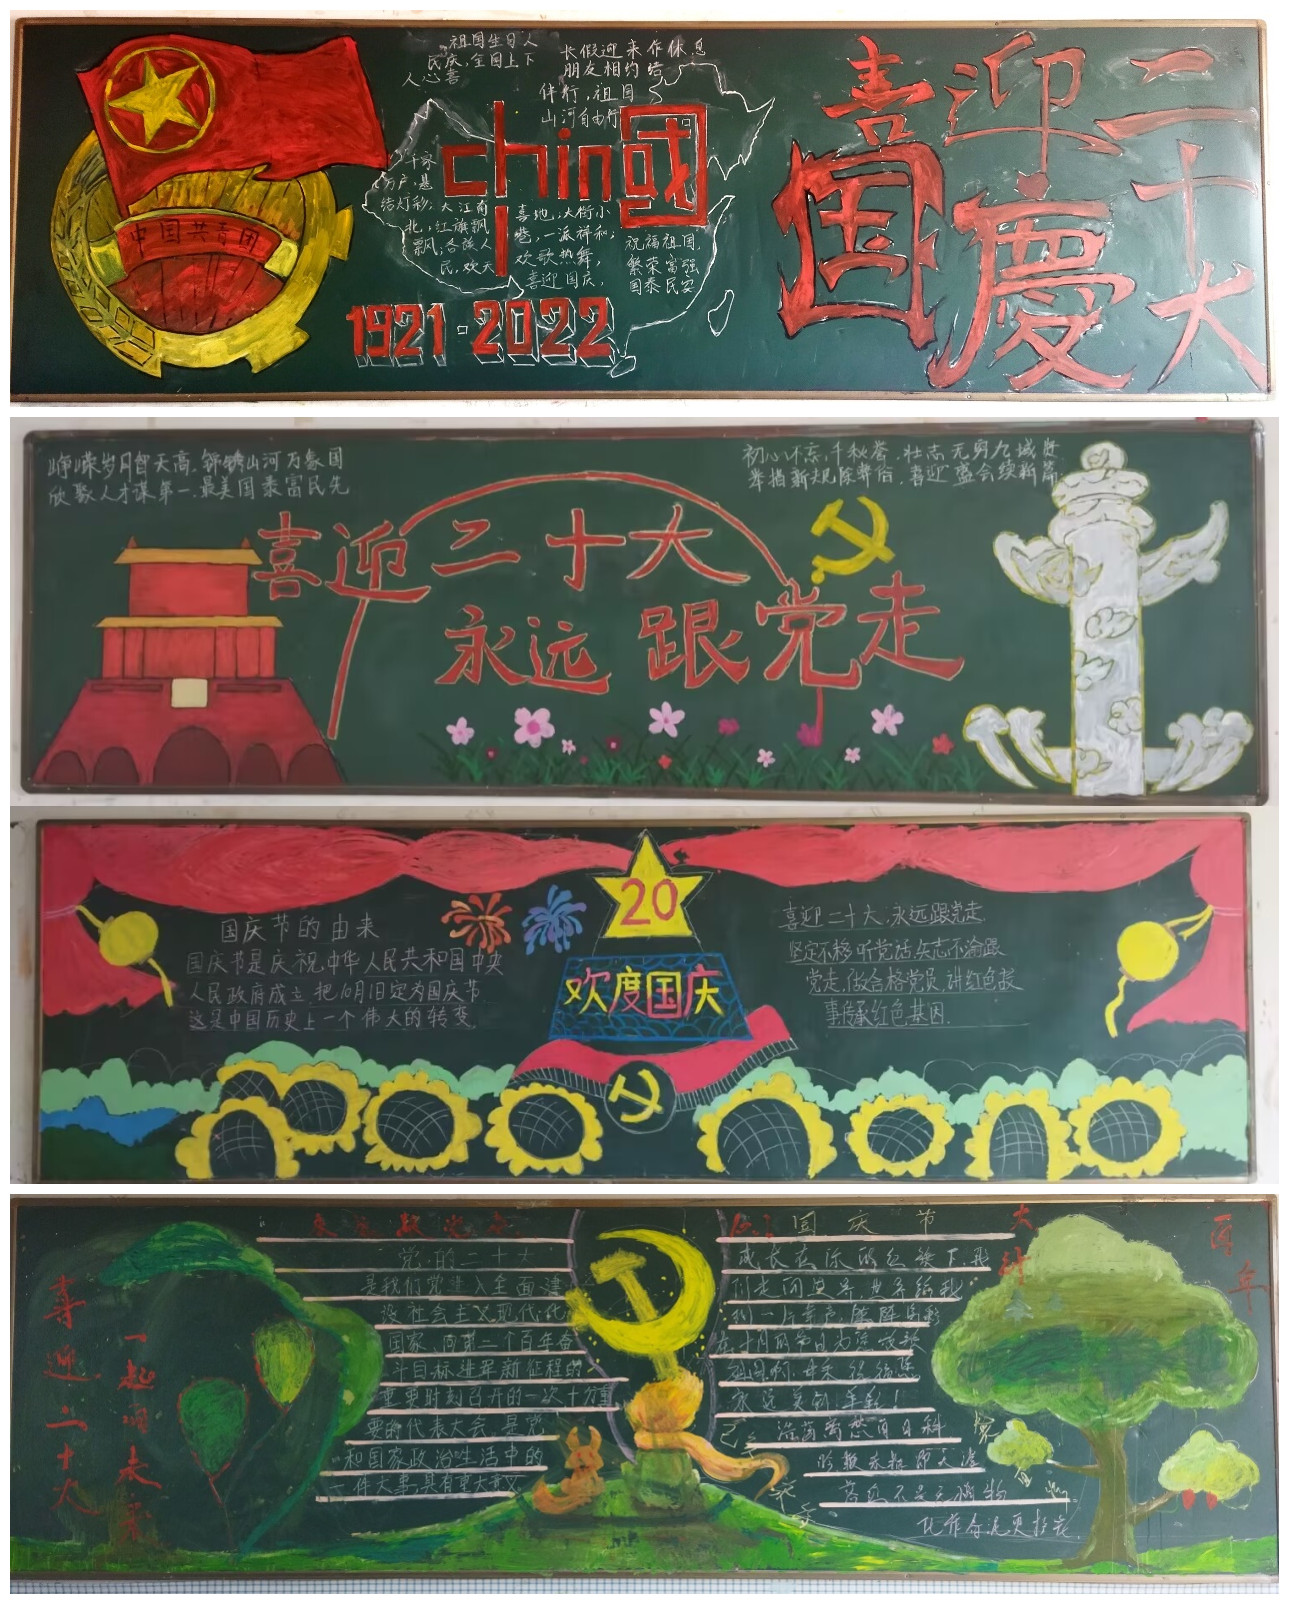 祖国生日人
民庆,全国上下
人心喜
长假迎来作休息
朋友相约结
伴行,祖国
山河自由行
chin國
千家
万户,悬
结灯彩;大江南
北,红旗飘
飘;各族人
民,欢天
喜地;大街小
巷,一派祥和;
欢歌热舞,
喜迎国庆,
祝福祖国,
繁荣富强
国泰民安
1921-2022
中国共青团
喜迎二十大
国慶
峥嵘岁月智天高,锦锈山河万象国
欣聚人才谋第一,最美国泰富民先
初心不忘千秋誉,壮志无穷九域
举措新规除弊俗,喜迎盛会续新篇
喜迎二十大
永远跟党走
国庆节的由来
国庆节是庆祝中华人民共和国中央
人民政府成立,把10月1日定为国庆节
这是中国历史上一个伟大的转变.
20
欢度国庆
喜迎二十大,永远跟党走
坚定不移听党话,矢志不渝跟
党走,做合格党员,讲红色故
事,传承红色基因.
喜迎二十大
一起向未来
党的二十大
是我们党进入全面建
设社会主义现代化
国家、向第二个百年奋
斗目标进军新征程的
重要时刻召开的一次十分重
要的代表大会,是党
和国家政治生活中的
一件大事,具有重大意义
国庆节
成长在你的红旗下
永远美丽,年轻!
浩荡离愁白日斜
吟鞭东指即天涯
落红不是无情物
化作春泥更护花